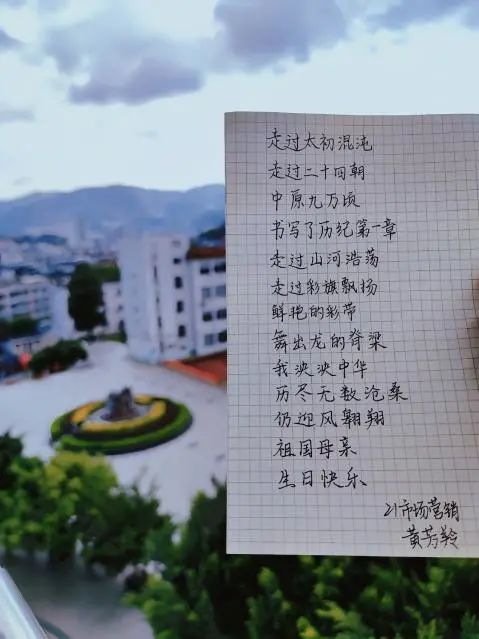 走过太初混沌
走过二十四朝
中原九万顷
书写了历纪第一章
走过山河浩荡
走过彩旗飘扬
鲜艳的彩带
舞出龙的脊梁
我泱泱中华
历尽无数沧桑
仍迎风翱翔
祖国母亲
生日快乐
21市场营销
黄芳羚